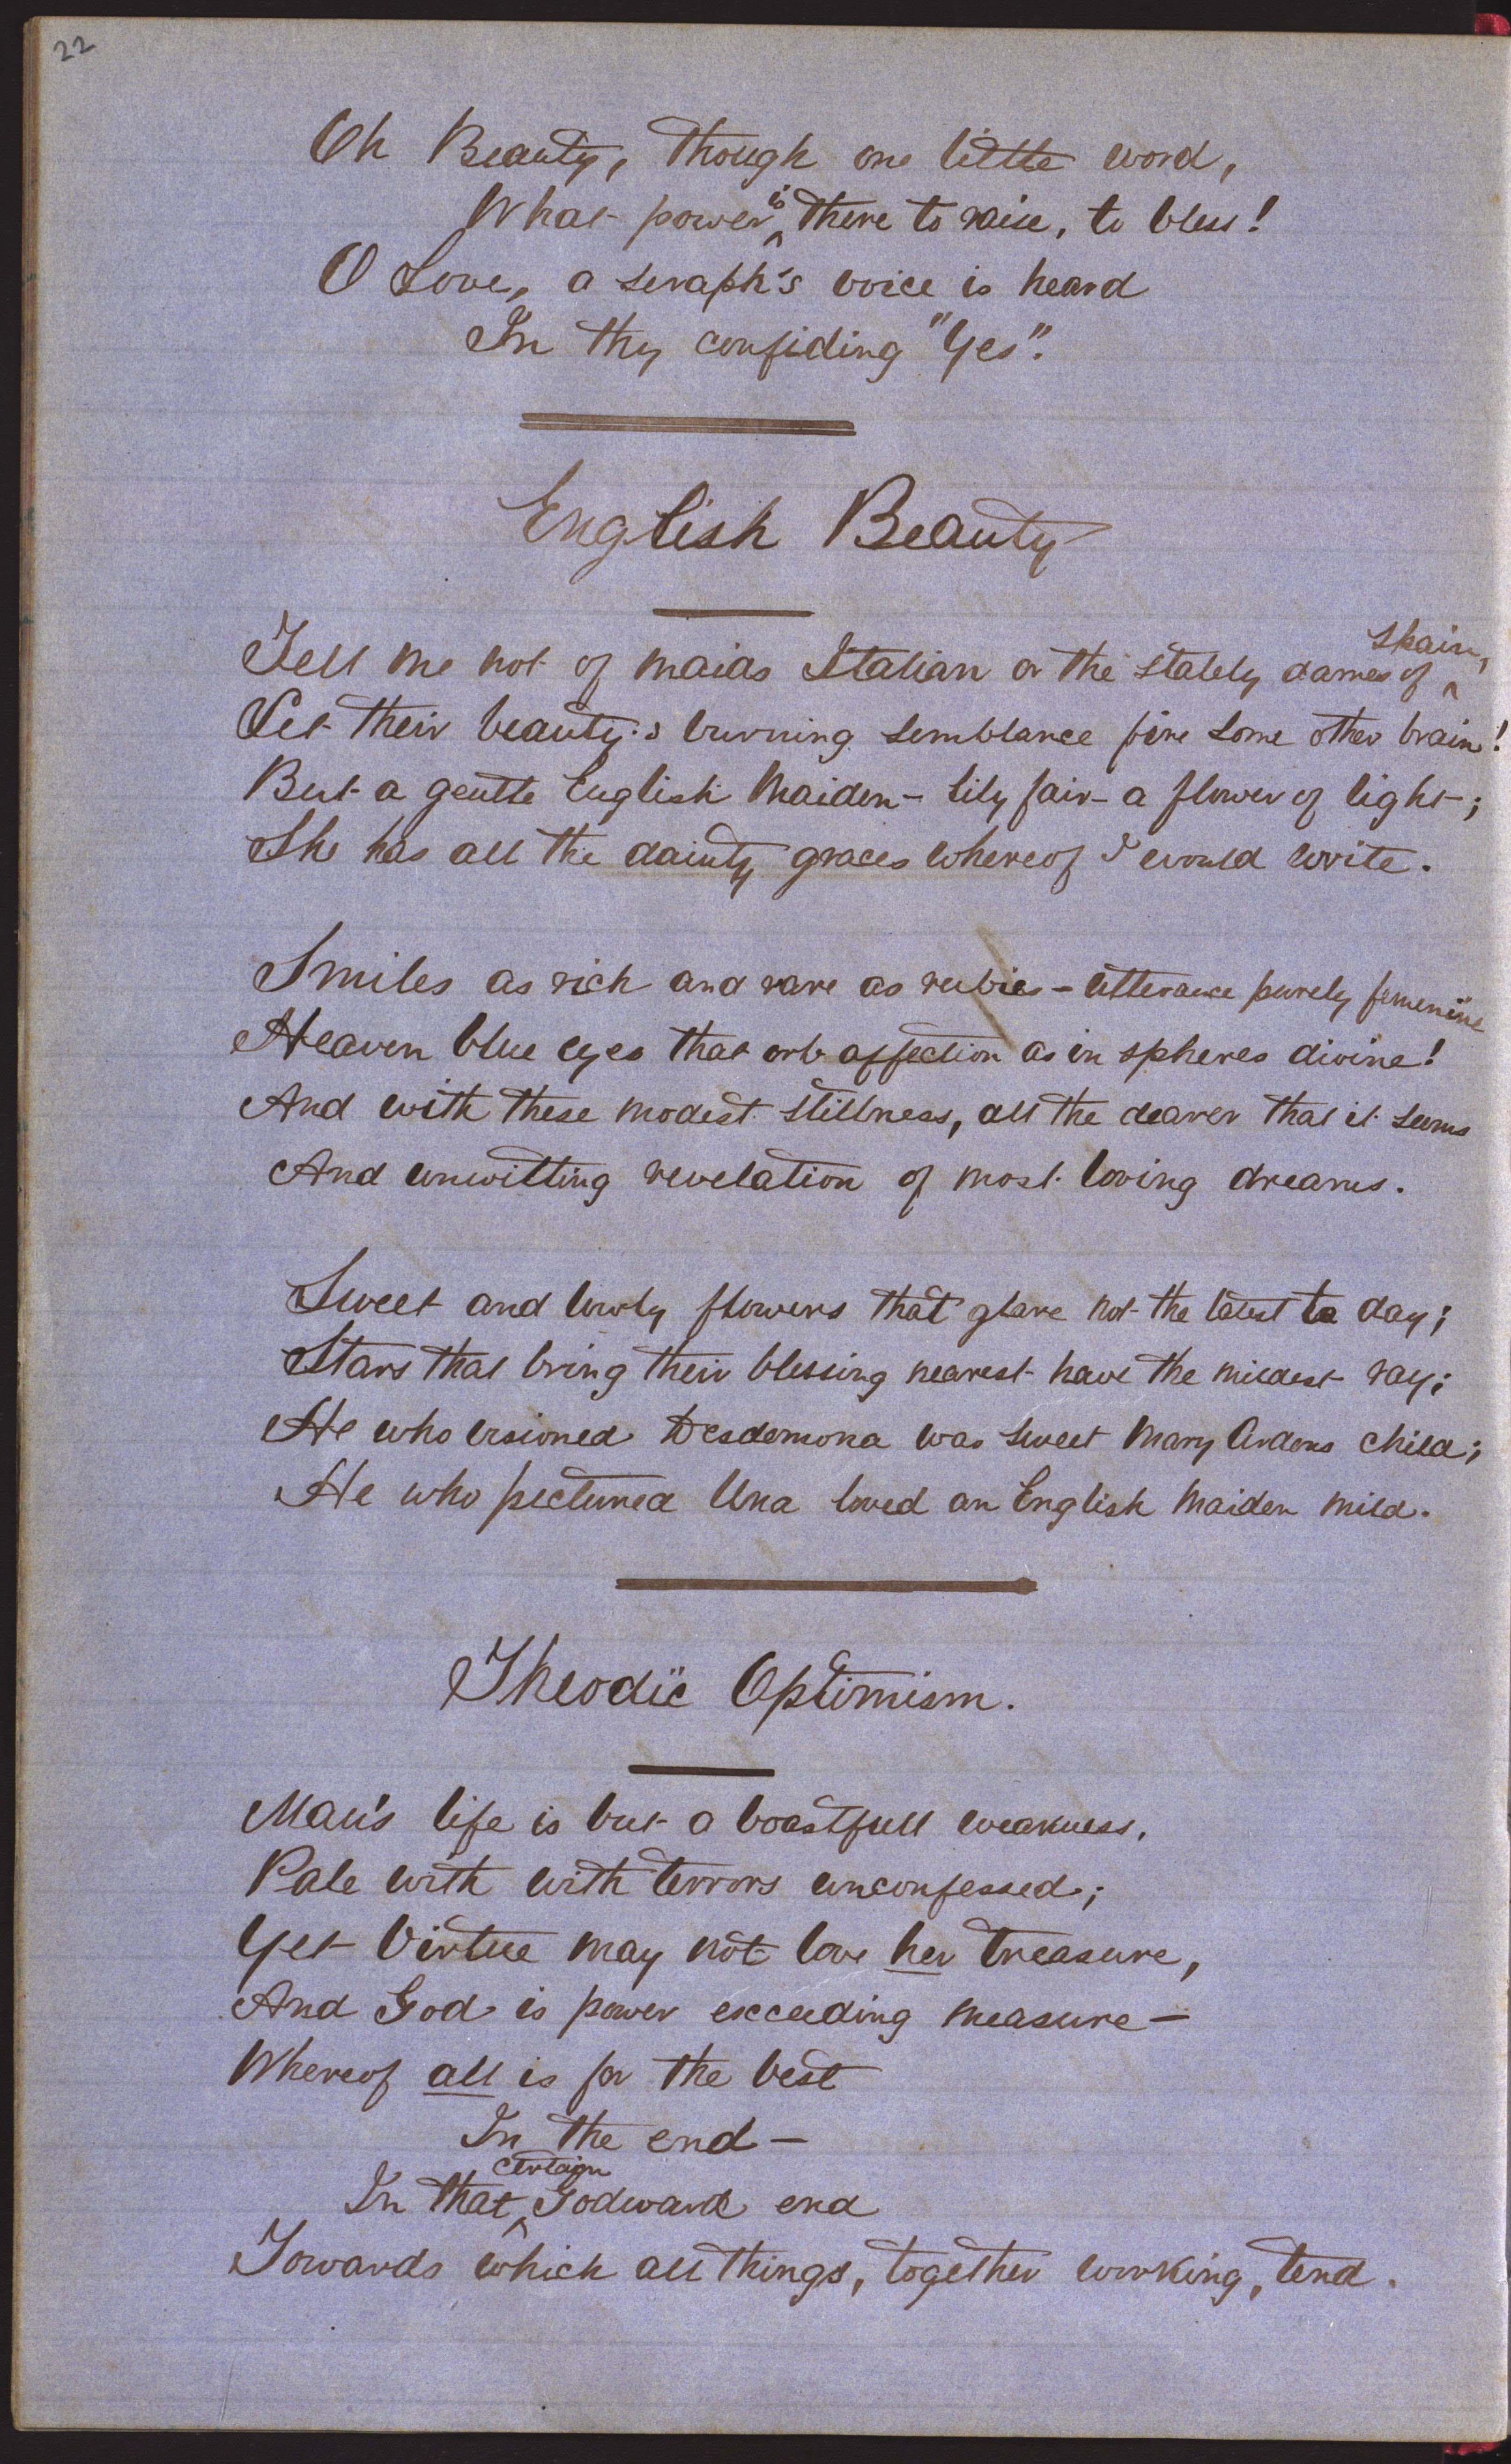 22
Oh Beauty, though one little word,
What power is there to raise, to bless!
O Love, a seraph's voice is heard
In thy confiding "Yes".
English Beauty
Tell me not of maids Italian or the stately dames of Spain,
Let their beauty's burning semblance fire some other brain!
But a gentle English Maiden - lily fair - a flower of light;
She has all the dainty graces whereof I would write.
Smiles as rich and rare as rubies - utterance purely femenine
Heaven blue eyes that orb affection as in spheres divine!
And with these modest stillness, all the dearer that it seems
And unwitting revelation of most loving dreams.
Sweet and lowly flowers that glare not the latest to day;
Stars that bring their blessing nearest have the mildest ray;
He who visioned Desdemona was sweet Mary Ardens child;
He who pictured Una loved an English Maiden mild.
Theodic Optimism.
Man's life is but a boastfull weakness,
Pale with with terrors unconfessed;
Yet Virtue may not love her treasure,
And God is power exceeding measure -
Whereof all is for the best
In the end -
In that certain Godward end
Towards which all things, together working, tend.